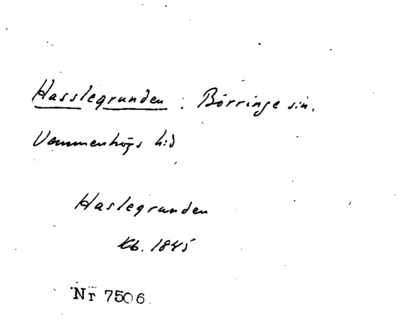 Hasslegrunden : Börringe sn.
Vemmenhögs hd
Haslegrunden
Kb. 1845
Nr 7506.